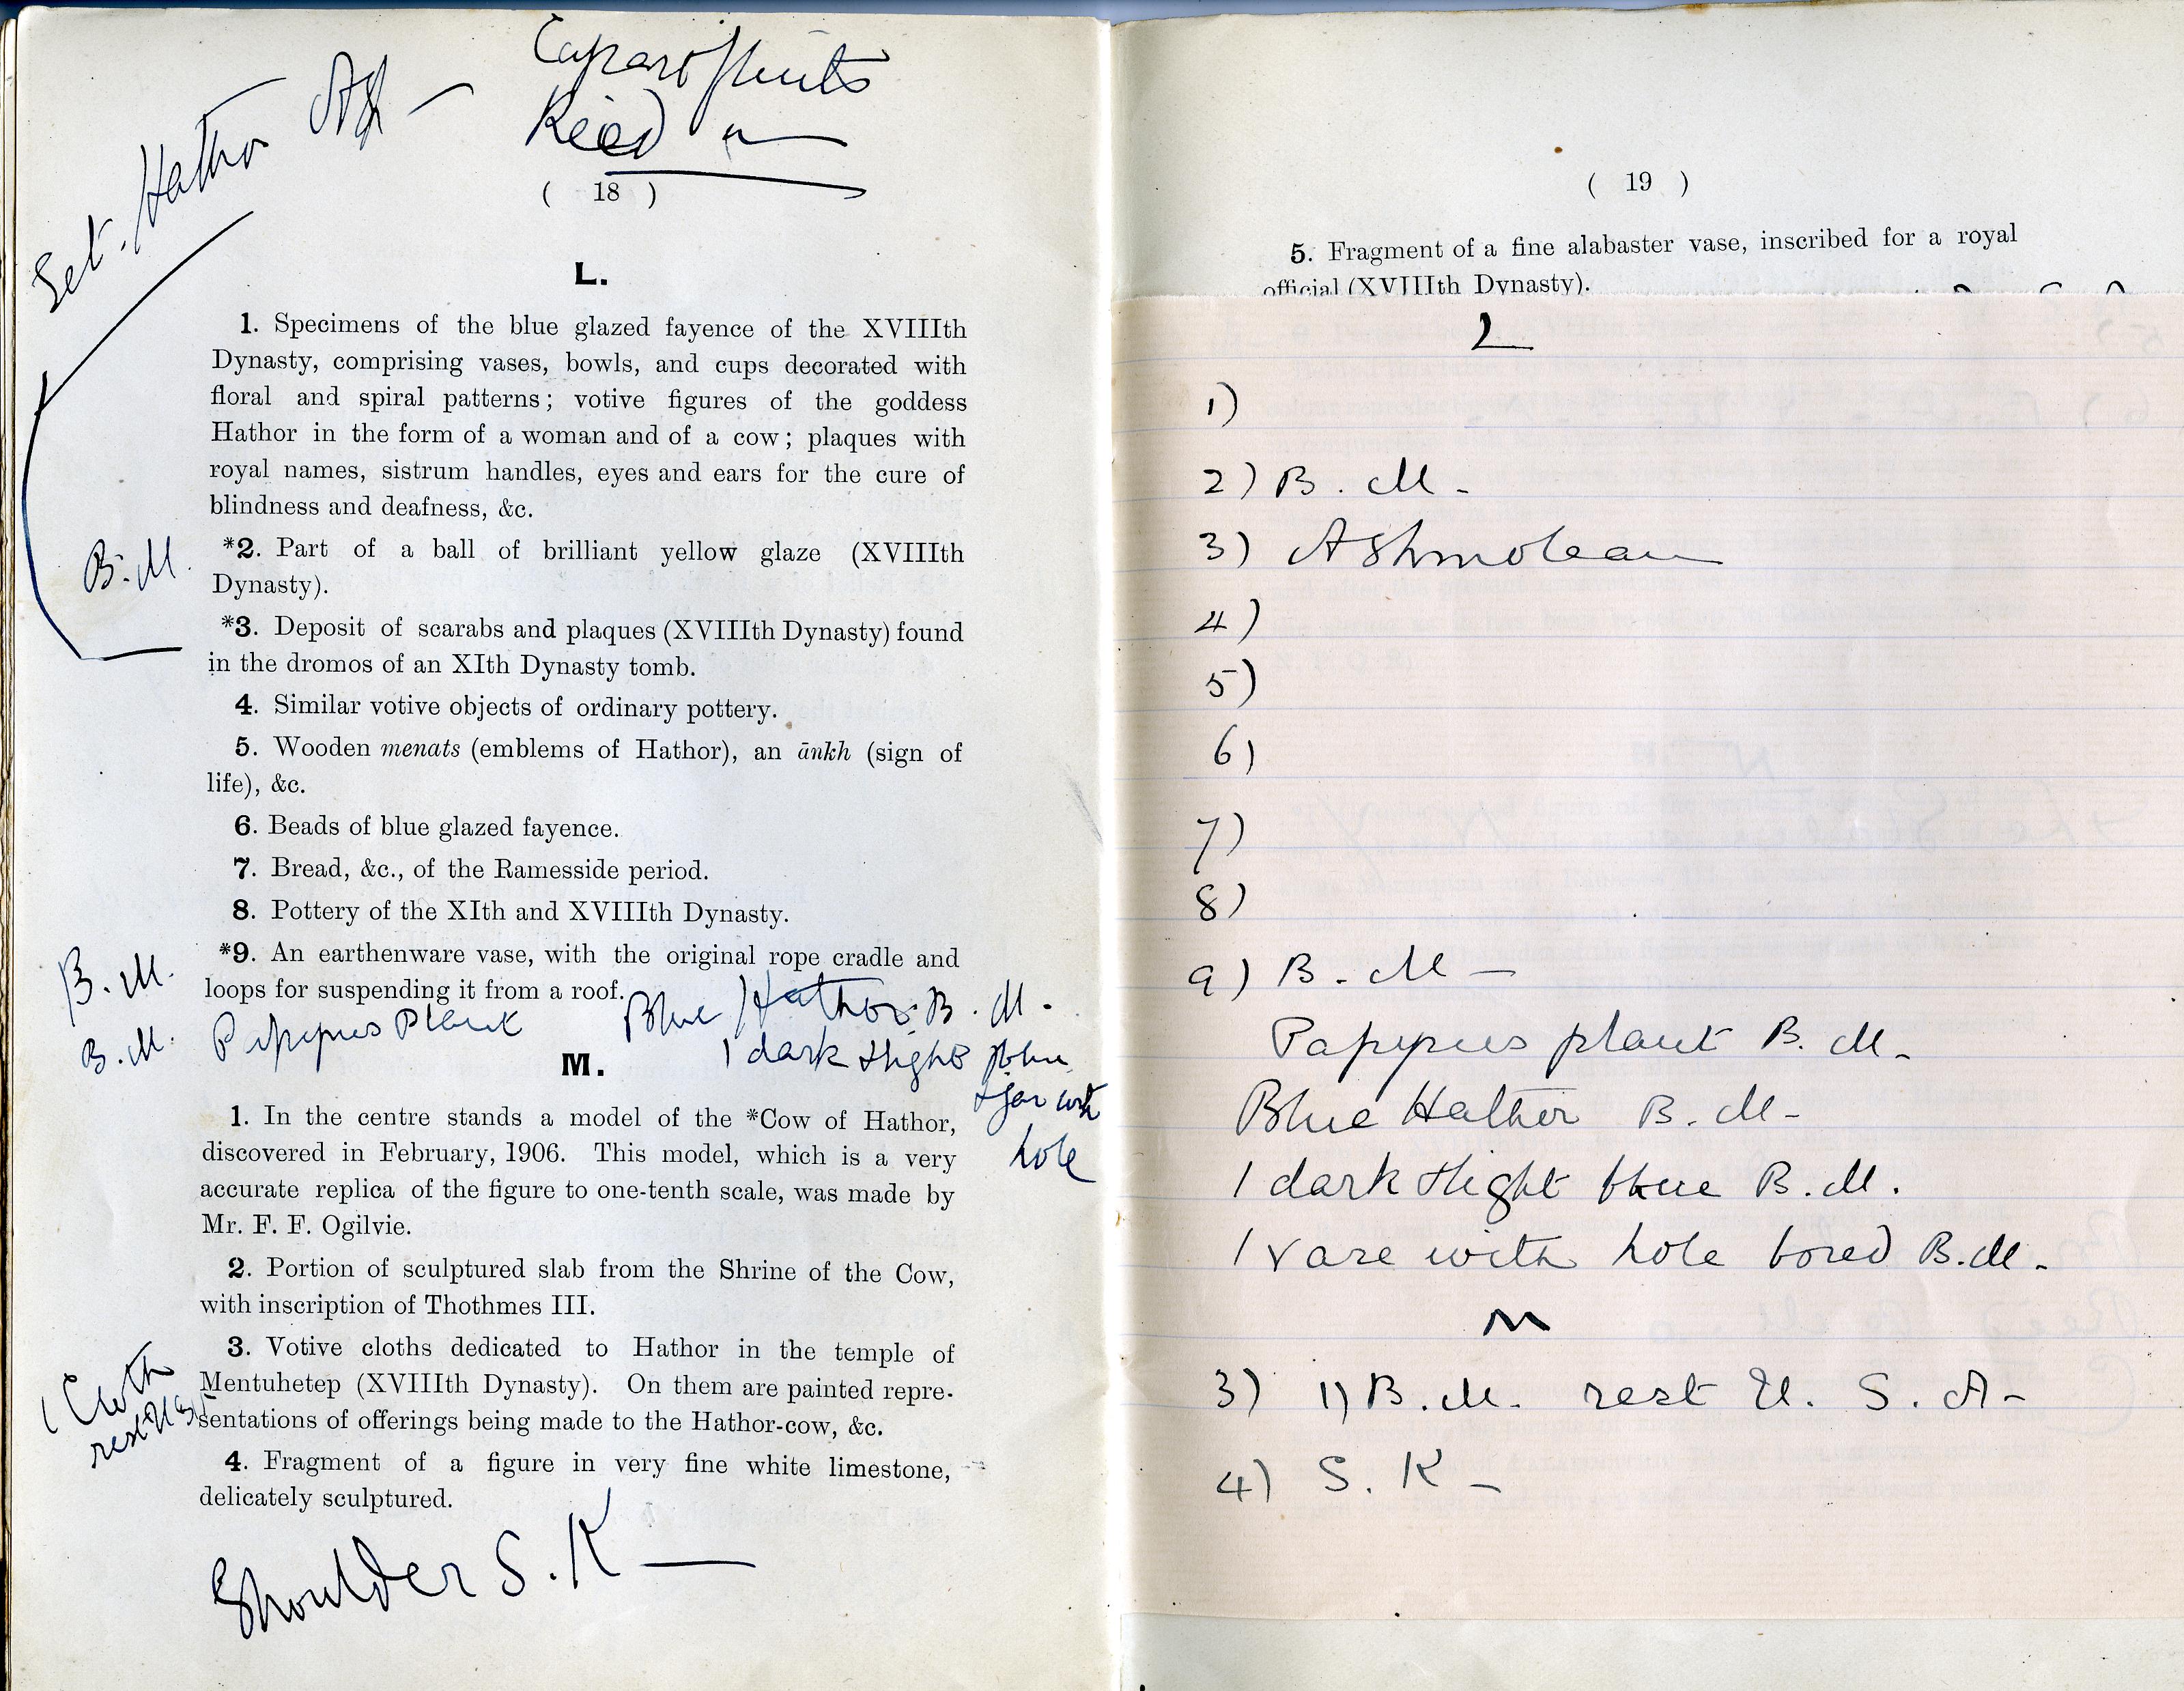 Set. Hathor
Reed
( 18 )
L.
1. Specimens of the blue glazed fayence of the XVIIIth
Dynasty, comprising vases, bowls, and cups decorated with
floral and spiral patterns; votive figures of the goddess
Hathor in the form of a woman and of a cow; plaques with
royal names, sistrum handles, eyes and ears for the cure of
blindness and deafness, &c.
B.M.
*2. Part of a ball of brilliant yellow glaze (XVIIIth
Dynasty).
*3. Deposit of scarabs and plaques (XVIIIth Dynasty) found
in the dromos of an XIth Dynasty tomb.
4. Similar votive objects of ordinary pottery.
5. Wooden menats (emblems of Hathor), an ānkh (sign of
life), &c.
6. Beads of blue glazed fayence.
7. Bread, &c., of the Ramesside period.
8. Pottery of the XIth and XVIIIth Dynasty.
B.M.
*9. An earthenware vase, with the original rope cradle and
loops for suspending it from a roof.
B.M. Papyrus Plant
Blue Hathor. B.M.
1 dark & light blue
& jar with
hole
M.
1. In the centre stands a model of the *Cow of Hathor,
discovered in February, 1906. This model, which is a very
accurate replica of the figure to one-tenth scale, was made by
Mr. F. F. Ogilvie.
2. Portion of sculptured slab from the Shrine of the Cow,
with inscription of Thothmes III.
1 Cloth
rest
3. Votive cloths dedicated to Hathor in the temple of
Mentuhetep (XVIIIth Dynasty). On them are painted repre-
sentations of offerings being made to the Hathor-cow, &c.
4. Fragment of a figure in very fine white limestone,
delicately sculptured.
Shoulder S.K —
( 19 )
5. Fragment of a fine alabaster vase, inscribed for a royal
official (XVIIIth Dynasty).
L
1)
2) B. M.
3) Ashmolean
4)
5)
6)
7)
8)
9) B. M —
Papyrus plant B. M.
Blue Hathor B. M-
1 dark & light blue B. M.
1 vase with hole bored B.M.
M
3) 1) B. M. rest U. S. A-
4) S. K -